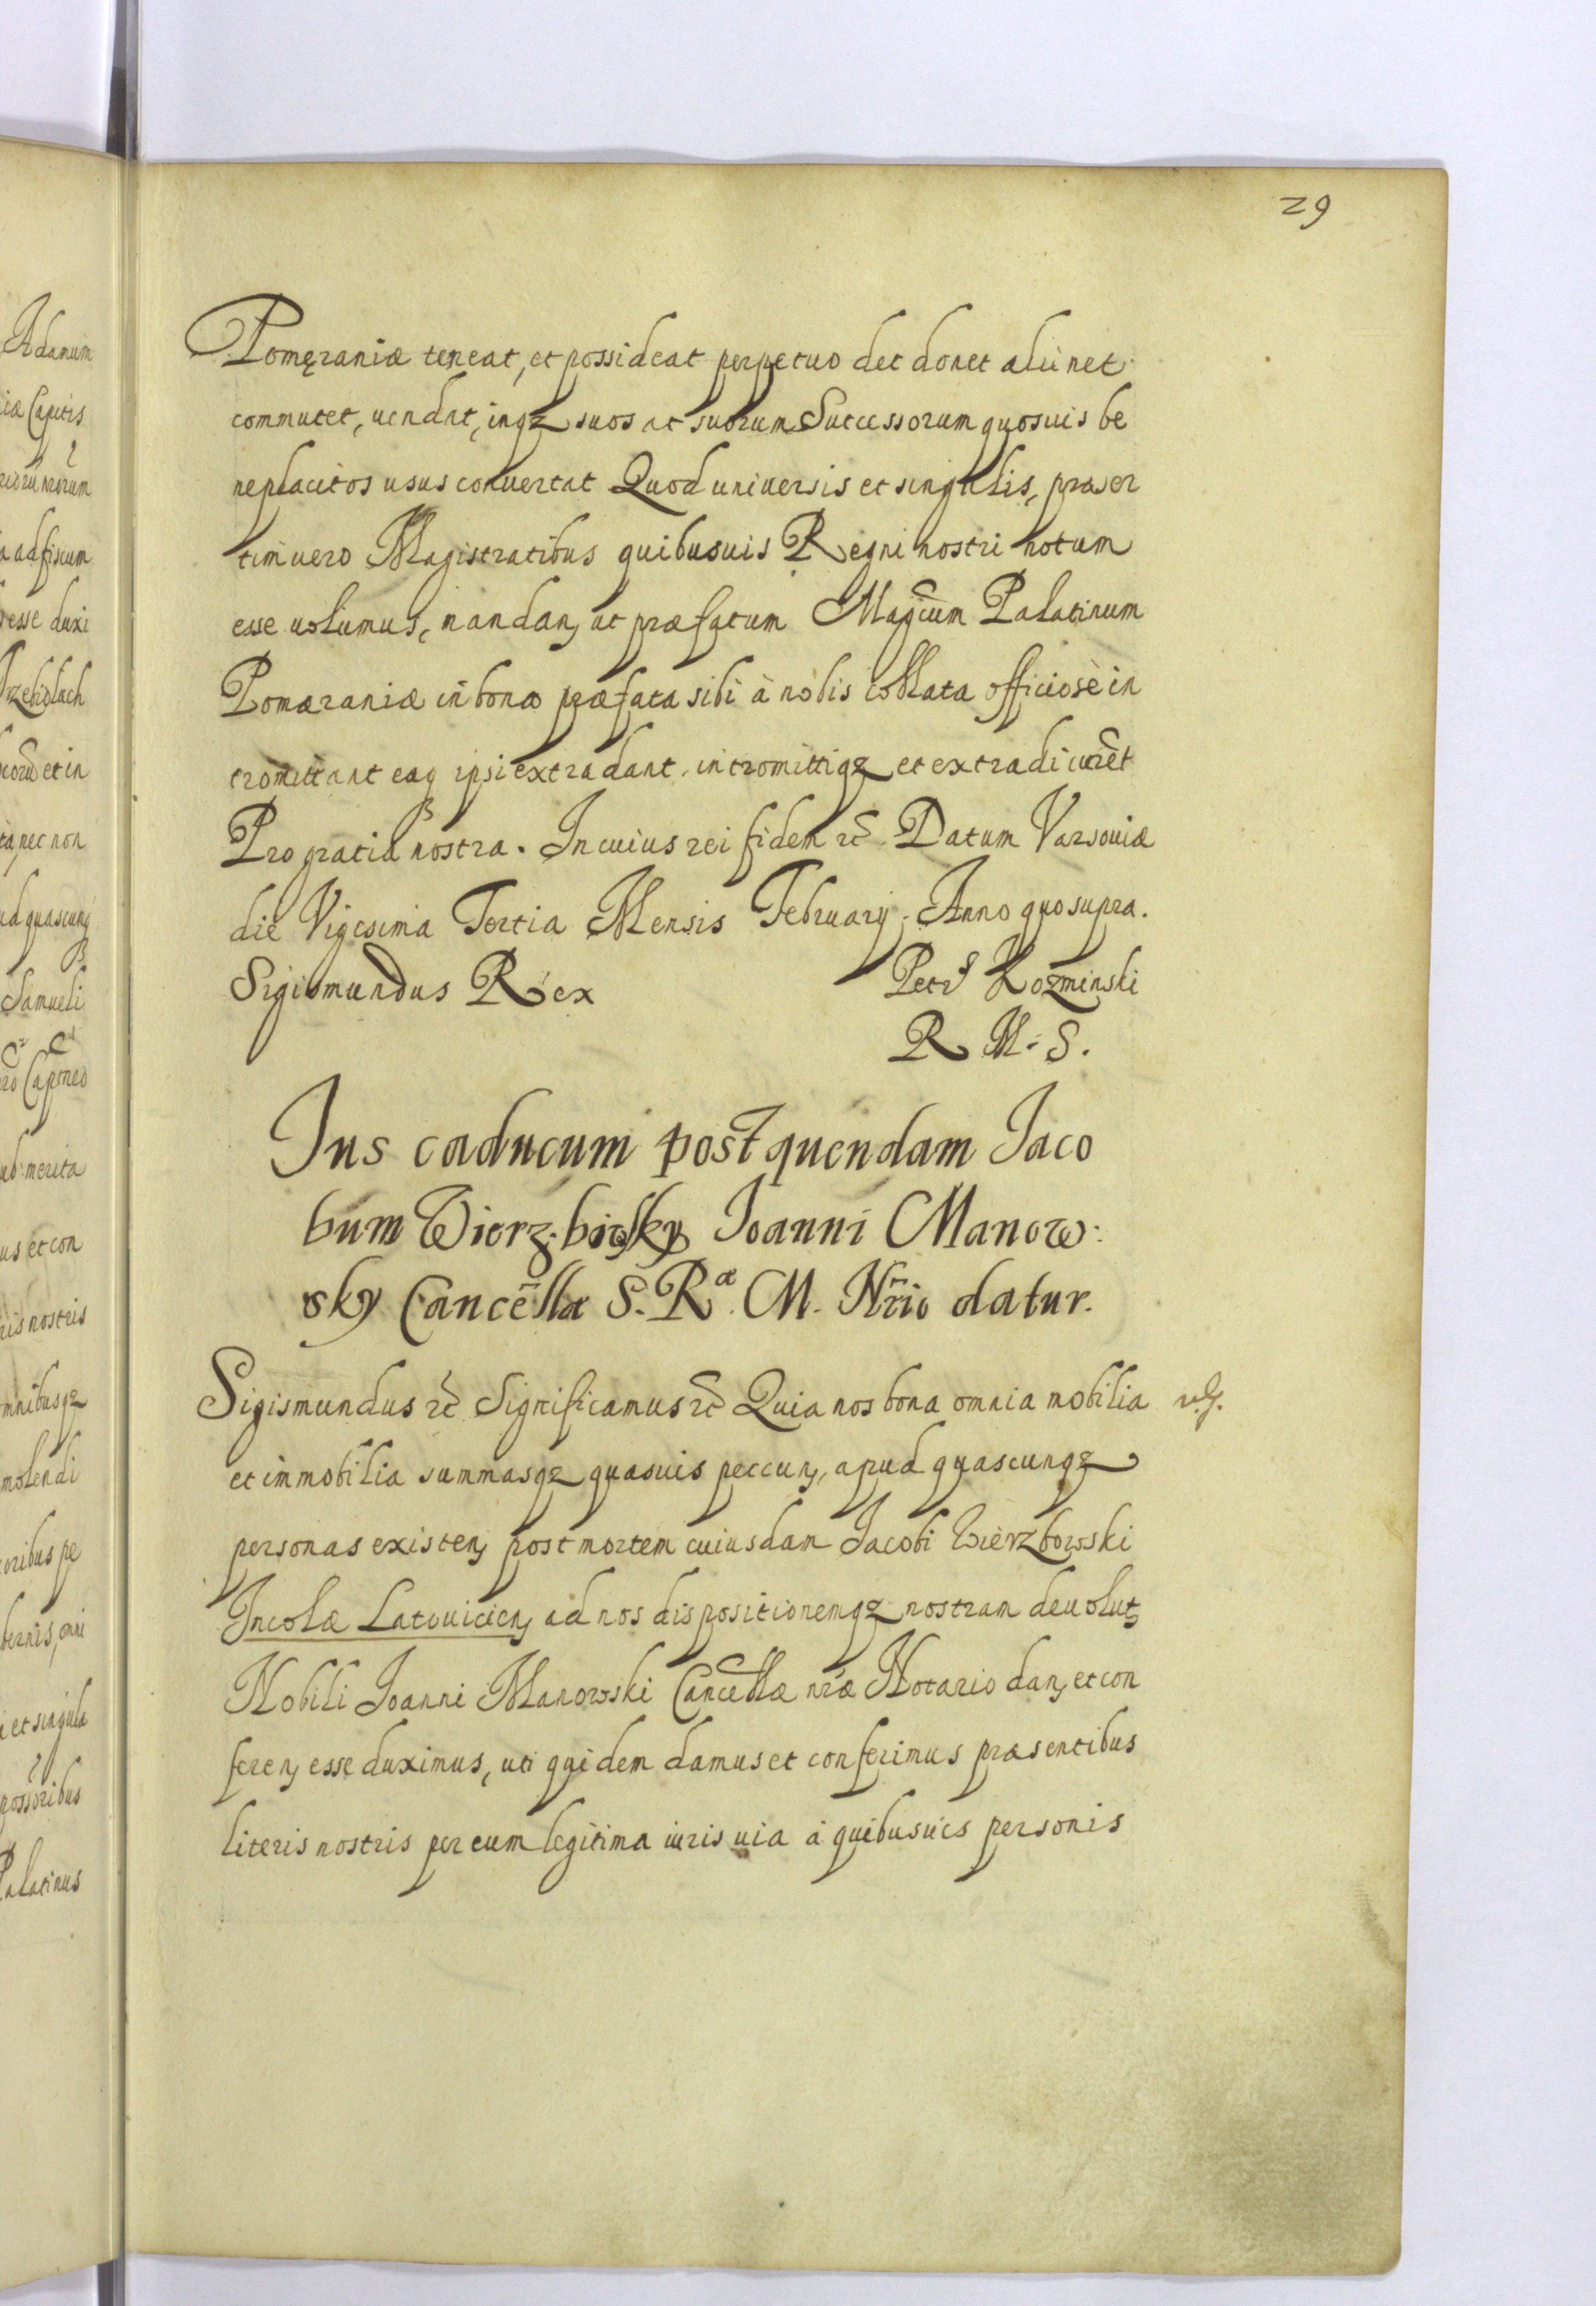 29
Pomęraniæ teneat, et possideat perpetuo det donet aliinet
commutet, uendat, inqz suos ac suorum Successorum quosuis be
neplacitos usus conuertat Quod uniuersis et singulis, præser
tim uero Magistratibus quibusuis Regni nostri notum
esse uolumus, mandan, ut præfatum Magcum Palatinum
Pomæraniæ in bona præfata sibi à nobis collata officiosè in
tromittant eaq ipsi extradant. intromittiqz et extradi curēt
Pro gratia nostra. In cuius rei fidem rc̄. Datum Varsouiæ
die Vigesima Tertia Mensis February. Anno quo supra.
Sigismundus Rex Petrs Kozminski
R M. S.
Jus caducum post quendam Jaco
bum Wierz.bowsky Joanni Manow:
sky Cancēllæ S. Ræ. M. Nrio datur.
Sigismundus rc̄ Significamus rc̄ Quia nos bona omnia mobilia
et immobilia summasqz quasuis peccun, apud quascunqz
personas existen, post mortem cuiusdam Jacobi Wierzbowski
Incolæ Latouicien, ad nos dispositionemqz nostram deuolut,
Nobili Joanni Manowski Cancellæ nræ Notario dan, et con
feren, esse duximus, uti quidem damus et conferimus præsentibus
literis nostris per eum legitima iuris uia à quibusuis personis
Adanum
iæ Capitis
riorū nrorum
a ad fiscum
esse duxi
Trzebiolach
corū et in
ta, nec non
ad quascunq
Samueli
ro Capneo
ub merita
us et con
ris nostris
mnibusqz
molendi
oribus pe
bernis, omi
i et singula
possoribus
Palatinus